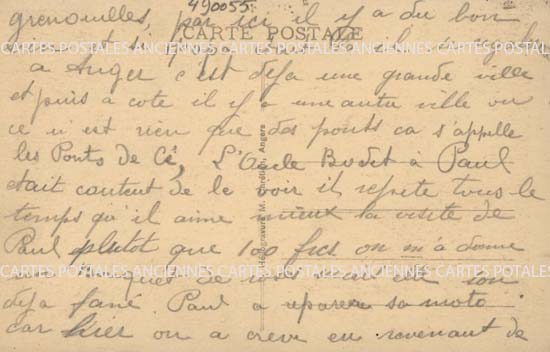 490055
grenouilles, par ici il y a du bon
CARTE POSTALE
vin et
a Anger c'est deja une grande ville
et puis a coté il y a une autre ville ou
ce n'est rien que des ponts ca s'appelle
les Ponts de Cé, L'Oncle Bodet a Paul
etait content de le voir il repete tous le
temps qu'il aime mieux la visite de
Paul plutot que 100 frcs on m'a donné
un bouquet de
deja fané Paul a reparer sa moto
car hier on a crevé en revenant de
CARTES POSTALES ANCIENNES CARTES POSTALES ANCIENNES